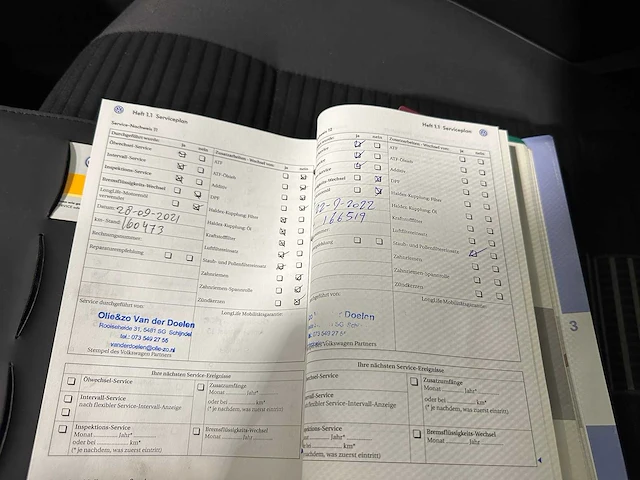 Heft 1.1 Serviceplan
Service-Nachweis 11
Durchgeführt wurde: ja nein
Ölwechsel-Service
Intervall-Service
Inspektions-Service
Bremsflüssigkeits-Wechsel
LongLife-Motorenöl
verwendet
Datum: 28-09-2021
km-Stand: 160473
Rechnungsnummer:
Reparaturempfehlung
Service durchgeführt von:
Olie&zo Van der Doelen
5481 SG Schijndel
tel.: 073 549 27 55
vanderdoelen@olie-zo.nl
Stempel des Volkswagen Partners
Zusatzarbeiten - Wechsel von: ja nein
ATF
ATF-Ölsieb
Additiv
DPF
Haldex-Kupplung: Filter
Haldex-Kupplung: Öl
Kraftstofffilter
Luftfiltereinsatz
Staub- und Pollenfiltereinsatz
Zahnriemen
Zahnriemen-Spannrolle
Zündkerzen
LongLife Mobilitätsgarantie:
Ihre nächsten Service-Ereignisse
Ölwechsel-Service
Intervall-Service
nach flexibler Service-Intervall-Anzeige
Inspektions-Service
Monat Jahr*
oder bei km*
(* je nachdem, was zuerst eintritt)
Zusatzumfänge
Monat Jahr*
oder bei km*
(* je nachdem, was zuerst eintritt)
Bremsflüssigkeits-Wechsel
Monat Jahr
Heft 1.1 Serviceplan
12
ja nein
9-2022
166519
Doelen
Volkswagen Partners
Zusatzarbeiten - Wechsel von: ja nein
ATF
ATF-Ölsieb
Additiv
DPF
Haldex-Kupplung: Filter
Haldex-Kupplung: Öl
Kraftstofffilter
Luftfiltereinsatz
Staub- und Pollenfiltereinsatz
Zahnriemen
Zahnriemen-Spannrolle
Zündkerzen
LongLife Mobilitätsgarantie:
Ihre nächsten Service-Ereignisse
flexibler Service-Intervall-Anzeige
Monat Jahr*
km*
(* je nachdem, was zuerst eintritt)
Zusatzumfänge
Monat Jahr*
oder bei km*
(* je nachdem, was zuerst eintritt)
Bremsflüssigkeits-Wechsel
Monat Jahr
3